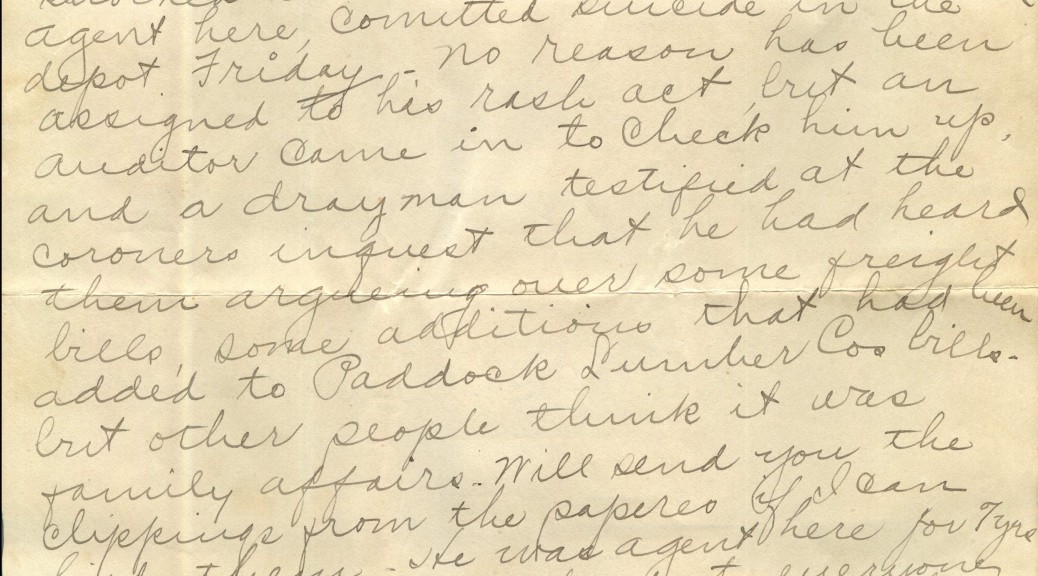 agent here, comitted suicide in the
depot Friday - no reason has been
assigned to his rash act, but an
auditor came in to check him up,
and a drayman testified at the
coroners inquest that he had heard
them argueing over some freight
bills, some additions that had been
added to Paddock Lumber Cos bills -
but other people think it was
family affairs. Will send you the
clippings from the papers if I can
He was agent here for 7 yrs
everyone